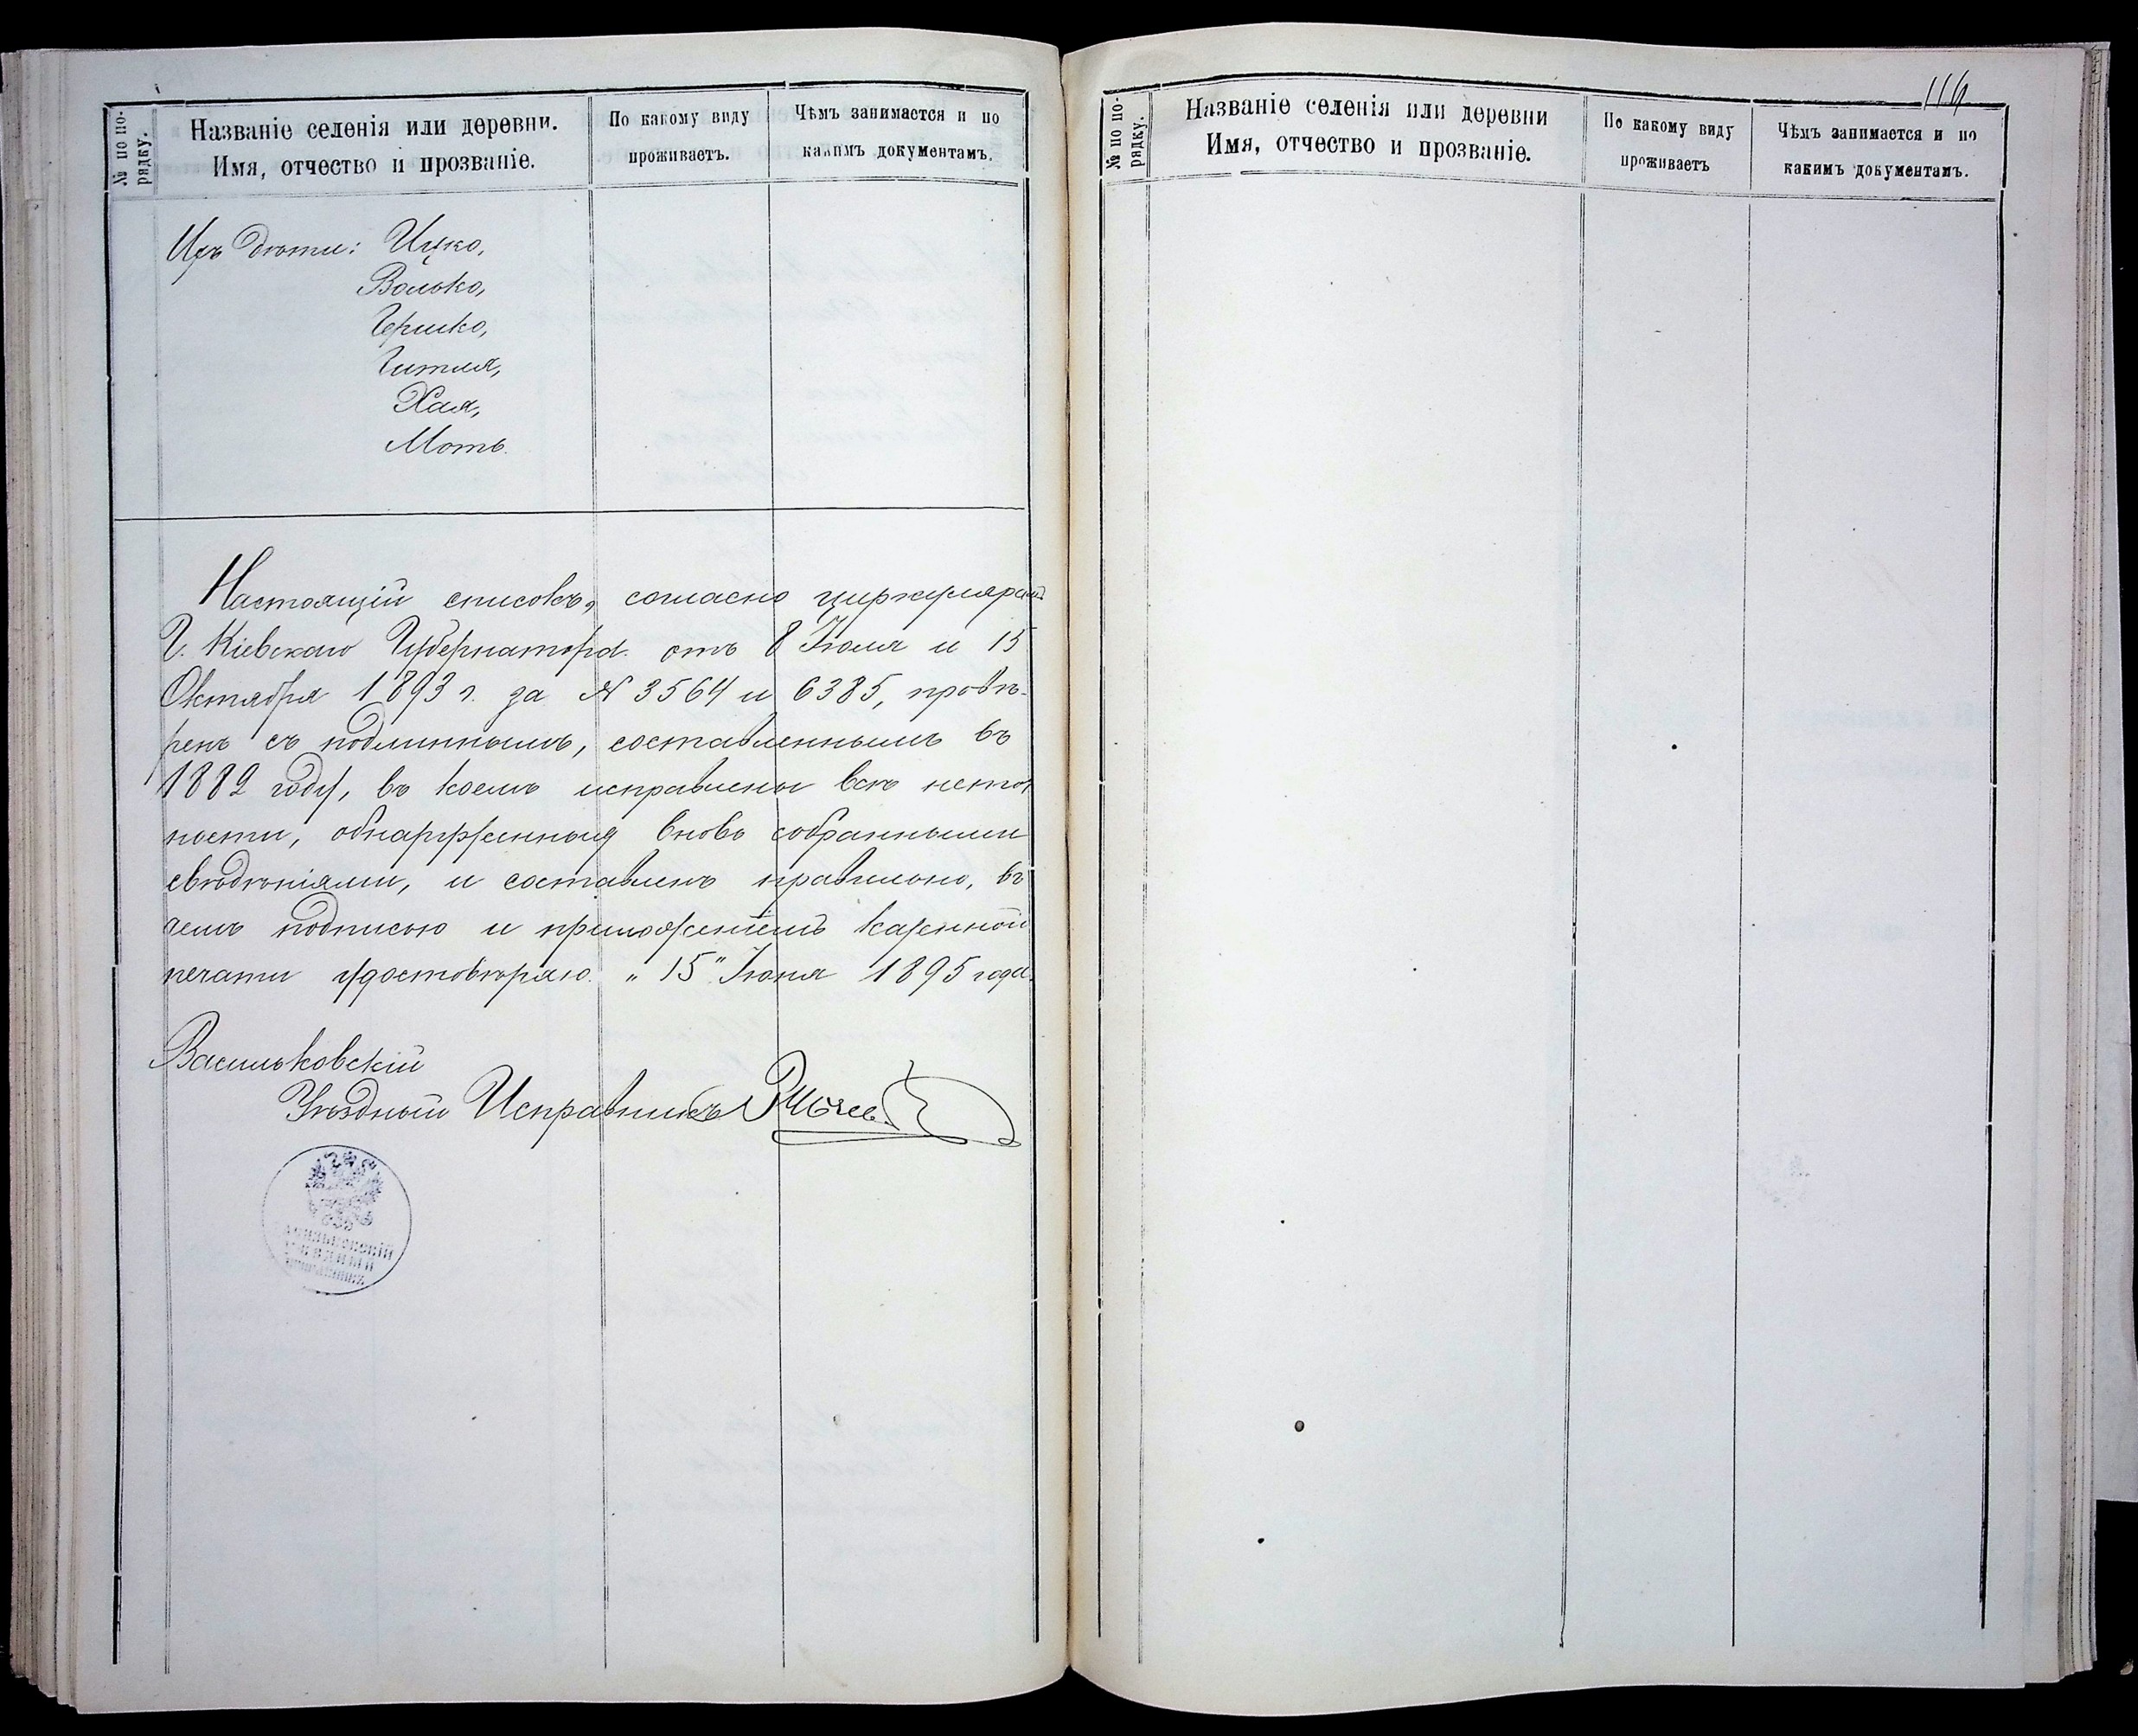 № по по-
рядку.
Названіе селенія или деревни.
Имя, отчество и прозваніе.
По какому виду
проживаетъ.
Чѣмъ занимается и по
какимъ документамъ.
Ихъ дѣти: Ицко,
Волько,
Гершко,
Гитля,
Хая,
Моть.
Настоящій списокъ, согласно циркулярам
Г. Кіевскаго Губернатора отъ 8 Іюля и 15
Октября 1893 г. за № 3564 и 6385, провѣ-
ренъ съ подлиннымъ, составленнымъ въ
1882 году, въ коемъ исправлены всѣ неточ
ности, обнаруженныя вновь собранными
свѣдѣніями, и составленъ правильно, въ
чемъ подписью и приложеніемъ казенной
печати удостовѣряю. „ 15 " Іюня 1895 года.
Васильковскій
Уѣздный Исправникъ
№ по по-
рядку.
Названіе селенія или деревни
Имя, отчество и прозваніе.
По какому виду
проживаетъ
Чѣмъ занимается и по
какимъ документамъ.
116